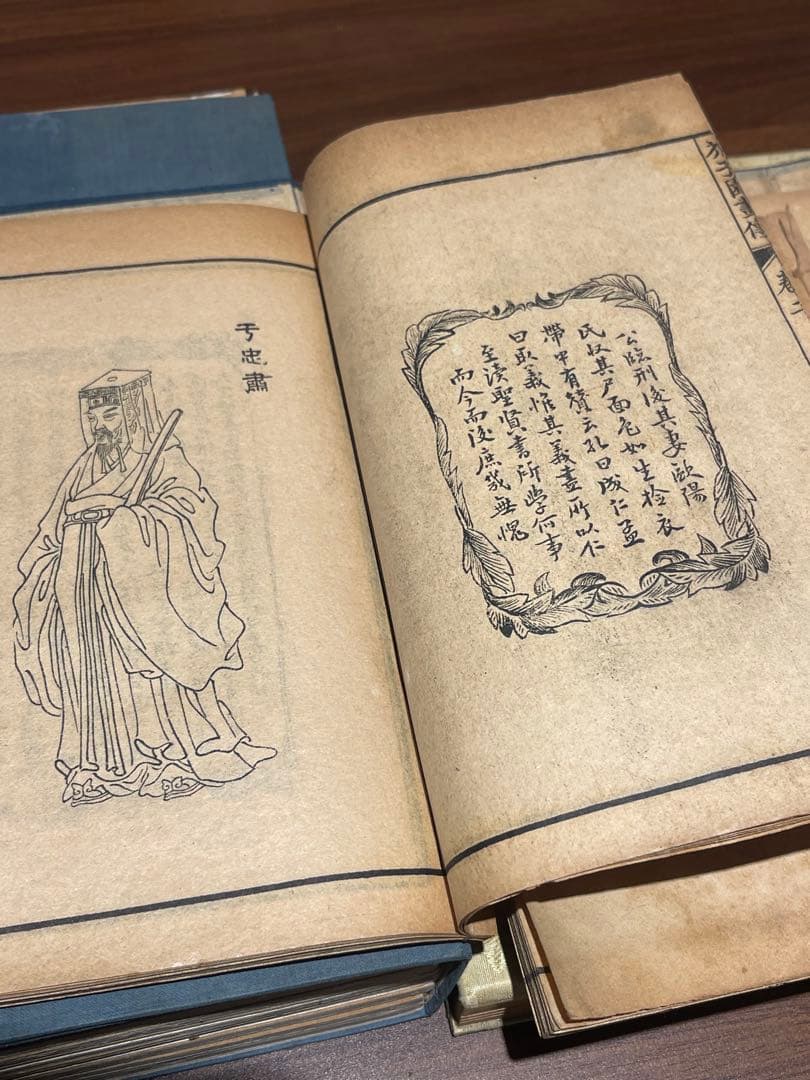 芥子園畫傳
卷
公臨刑後其妻歐陽
氏収其尸面色如生檢衣
帶中有贊云孔曰成仁孟
曰取義惟其義盡所以仁
至讀聖賢書所學何事
而今而後庶幾無愧
于忠肅